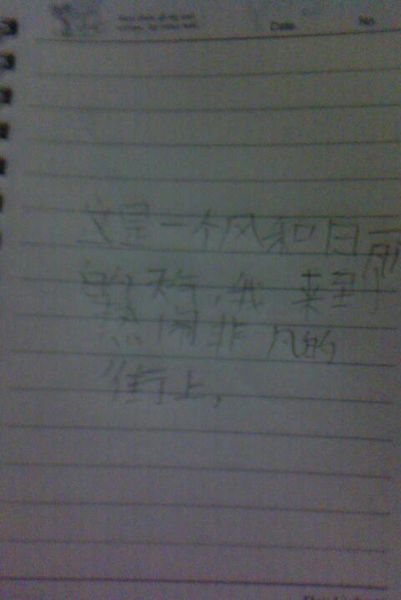 Date
No
这是一个风和日丽
的天气,我来到
热闹非凡的
街上,